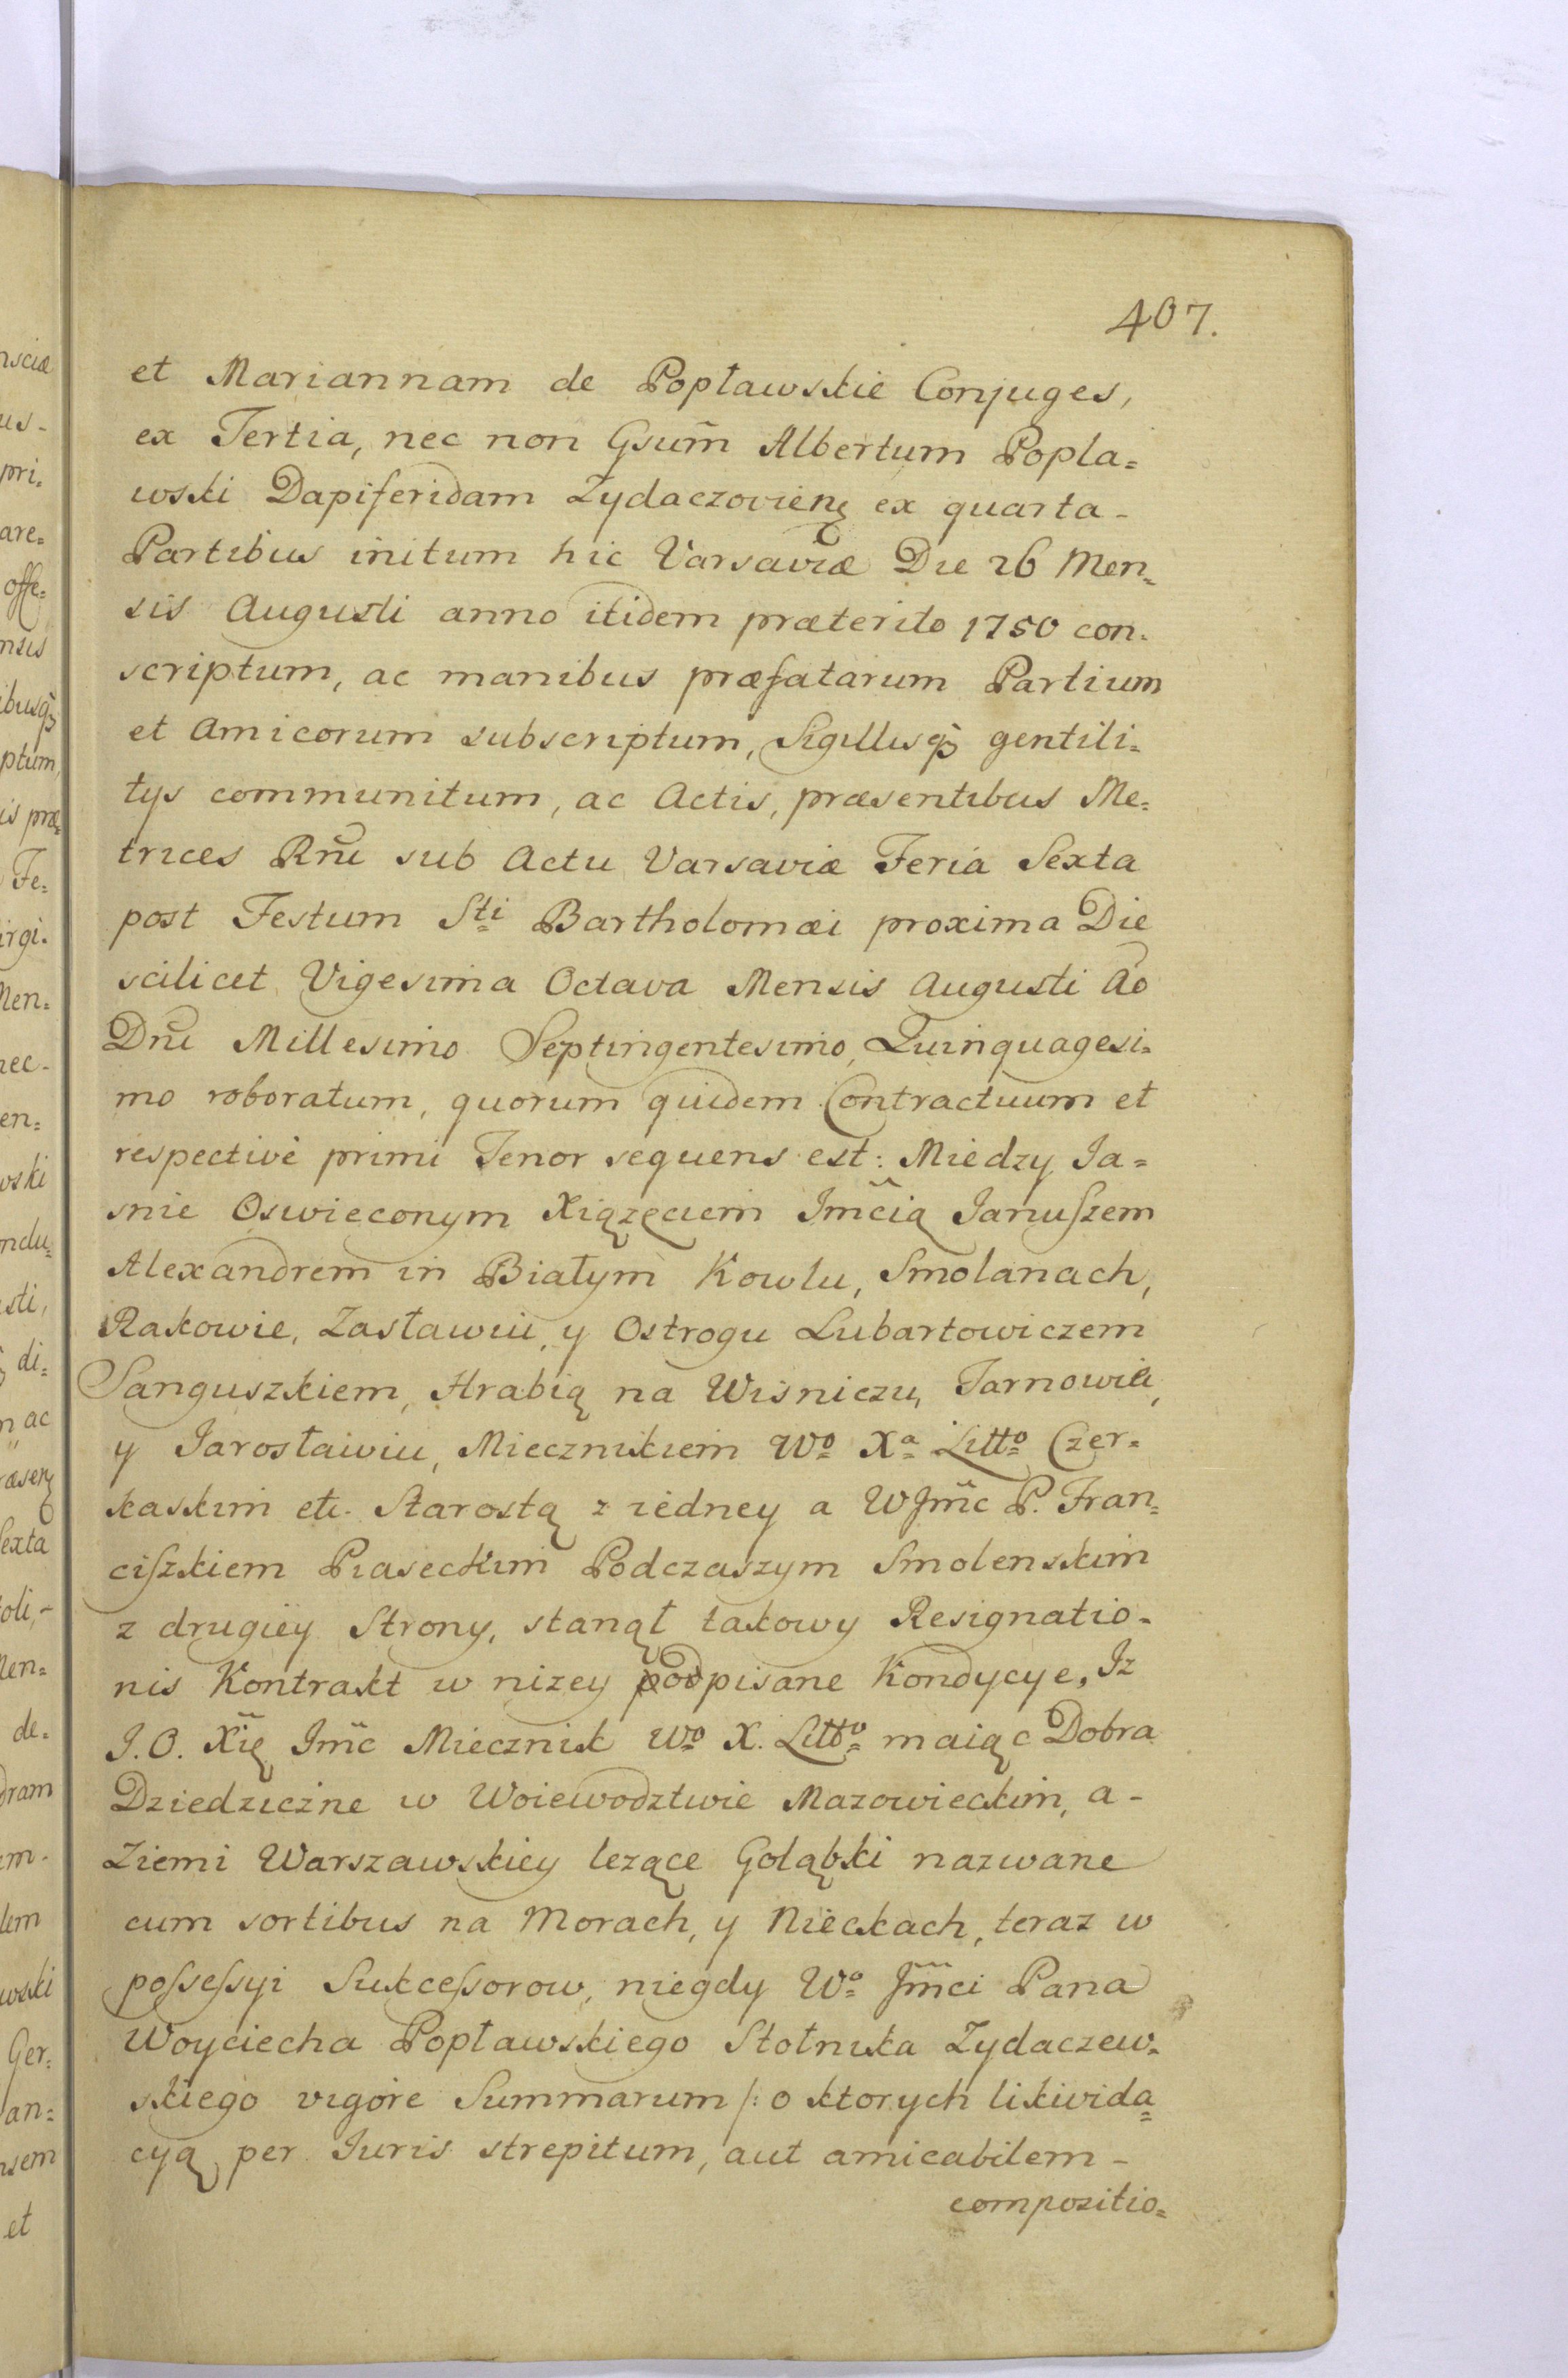 407.
et Mariannam de Popławskie Conjuges,
ex Tertia, nec non Gsum̃ Albertum Popla=
wski Dapiferidam Zydaczovien̨ ex quarta -
Partibus initum hic Varsaviæ Die 26 Men=
sis Augusti anno itidem præterito 1750 con.
scriptum, ac manibus præfatarum Partium
et Amicorum subscriptum, Sigillisqȝ gentili=
tys communitum, ac Actis, præsentibus Me=
trices Rñi sub Actu Varsaviæ Feria Sexta
post Festum Sti Bartholomæi proxima Die
scilicet Vigesima Octava Mensis Augusti Ão
Dñi Millesimo Septingentesimo, Quinquagesi=
mo roboratum, quorum quidem Contractuum et
respectivè primi Tenor sequens est: Miedzy Ja=
snie Oswieconym Xiązęciem Jm̃cią Januſzem
Alexandrem in Białym Kowlu, Smolanach,
Rakowie, Zasławiu, y Ostrogu Lubartowiczem
Sanguszkiem, Hrabią na Wisniczu, Tarnowie,
y Jarosławiu, Miecznikiem Wo Xa Litto Czer=
kaskim etc. Starostą z iedney a WJm̃c P. Fran=
ciſzkiem Piaseckim Podczaszym Smolenskim
z drugiey Strony, stanął takowy Resignatio=
nis Kontrakt w nizey podpisane Kondycye, Iz
J.O. Xię Jm̃c Miecznik Wo X. Litto maiąc Dobra
Dziedziczne w Woiewodztwie Mazowieckim, a -
Ziemi Warszawskiey lezące Gołąbki nazwane
cum sortibus na Morach, y Nieckach, teraz w
poſseſsyi Sukceſsorow, niegdy Wo Jm̃ci Pana
Woyciecha Popławskiego Stolnika Zydaczew=
skiego vigore Summarum /: o ktorych likwida=
cyą per Iuris strepitum, aut amicabilem -
compositio=